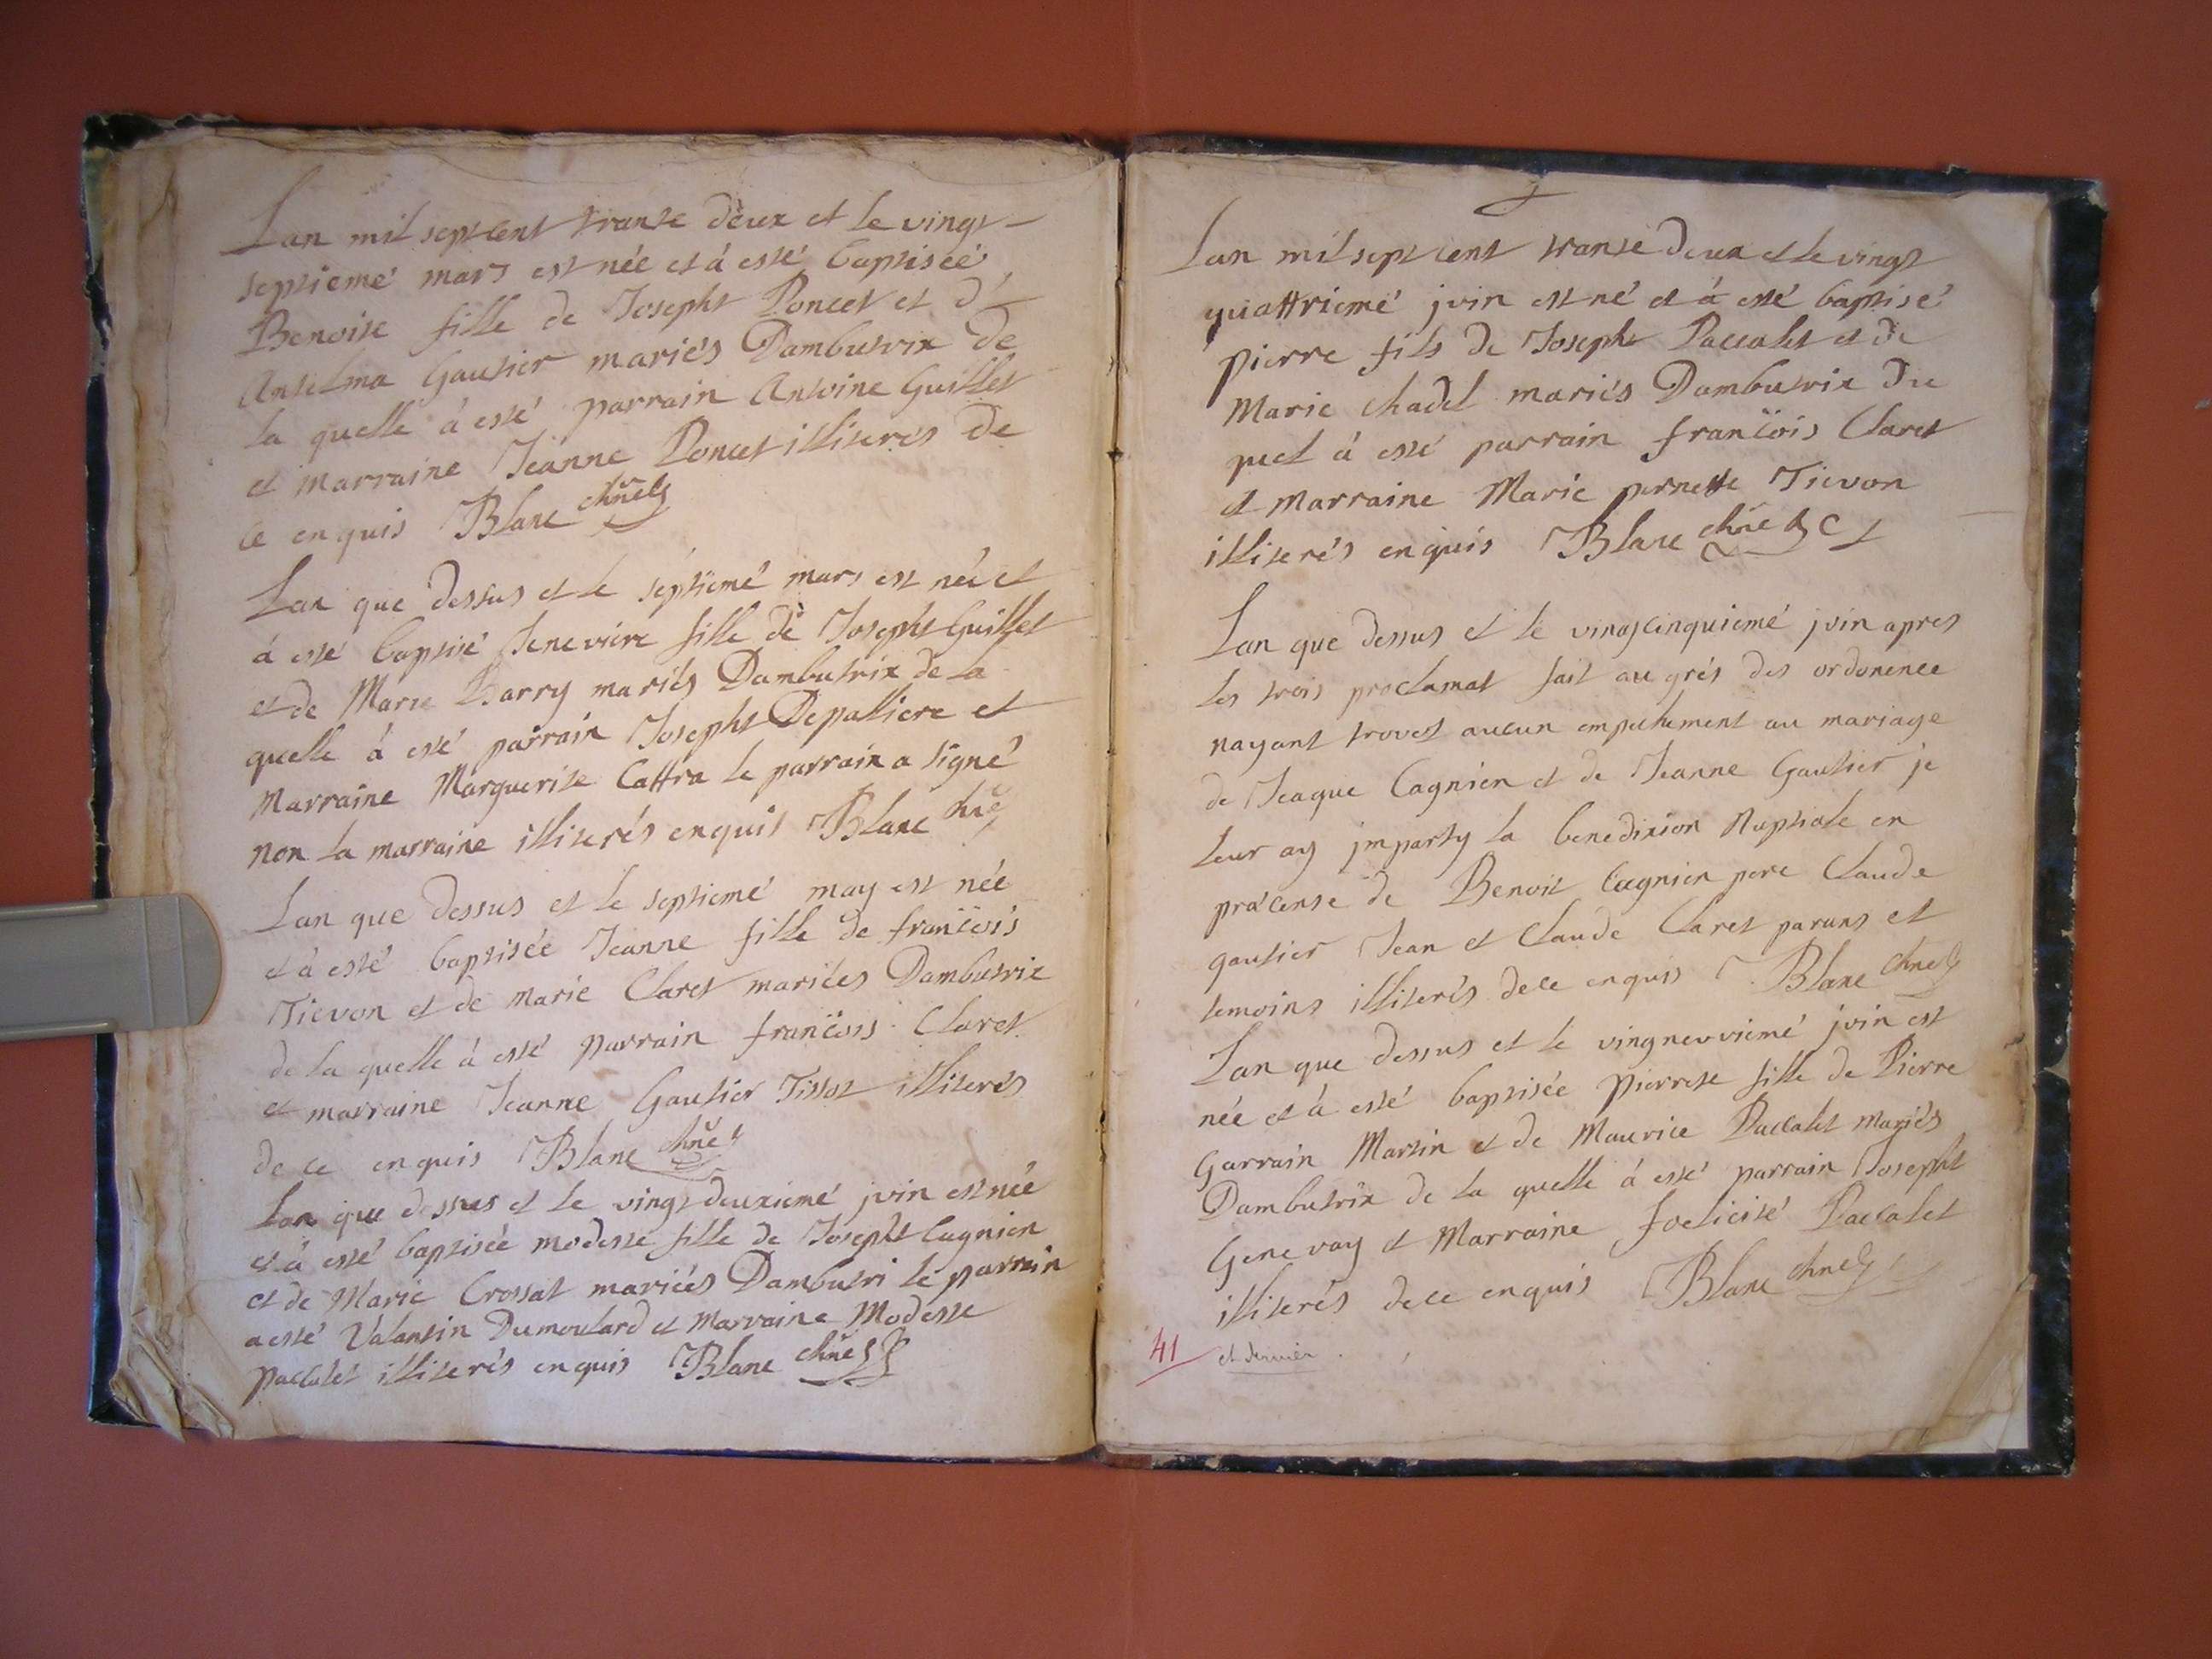 Lan mil septcent trante deux et le vingt
septiemé mars est née et à esté baptiseé
Benoite fille de Josepht Poncet et d'
Antelma Gautier mariés Dambutrix de
la quelle à esté parrain Antoine Guillet
et marraine Jeanne Poncet illiterés de
ce enquis Blanc chñe
Lan que dessus et le séptiemé mars est née et
à esté baptisé Jenevieve fille de Josepht Guillet
et de Marie Barry mariés Dambutrix de la
quelle à esté parrain Josepht Depalliere et
Marraine Marguerite Cattra le parrain a signé
non la marraine illiterés enquis Blanc chñe
Lan que dessus et le septiemé may est née
et à esté baptisée Jeanne fille de francois
Tievon et de marie Claret mariées Dambutrix
de la quelle à esté parrain francois Claret
et marraine Jeanne Gautier Tissot illiterés
de ce enquis Blanc chñe
Lan que dessus et le vingt deuxiemé juin est née
et à esté baptisée modeste fille de Josepht Cagnien
et de Marie Crossat mariées Dambutri le parrain
a esté Valantin Dumoulard et Marraine Modeste
paccalet illiterés enquis Blanc chñe
Lan mil sept cent trante deux et le vingt
quattriemé juin est né et à esté baptisé
pierre fils de Josepht Paccalet et de
Marie chadel mariés Dambutrix du
quel à esté parrain francois Claret
et marraine Marie pernette Tievon
illiterés enquis Blanc chñe
Lan que dessus et le vingtcinquiemé juin apres
les trois proclamat fait au grés des ordonence
nayant trovet aucun empechement au mariage
de Jeaque Cagnien et de Jeanne Gautier je
leur ay jmparty la benedixion Nuptiale en
precense de Benoit Cagnien pere Claude
gautier Jean et Claude Claret parans et
temoins illiterés dece enquis Blanc chne
Lan que dessus et le vingneuviemé juin est
née et à esté baptisée pierrete fille de Pierre
Garrain Martin et de Maurice Paccalet mariés
Dambutrix de la quelle à esté parrain Josepht
Genevay et Marraine foelicité Paccalet
illiterés dece enquis Blanc chne
41 et dernier.